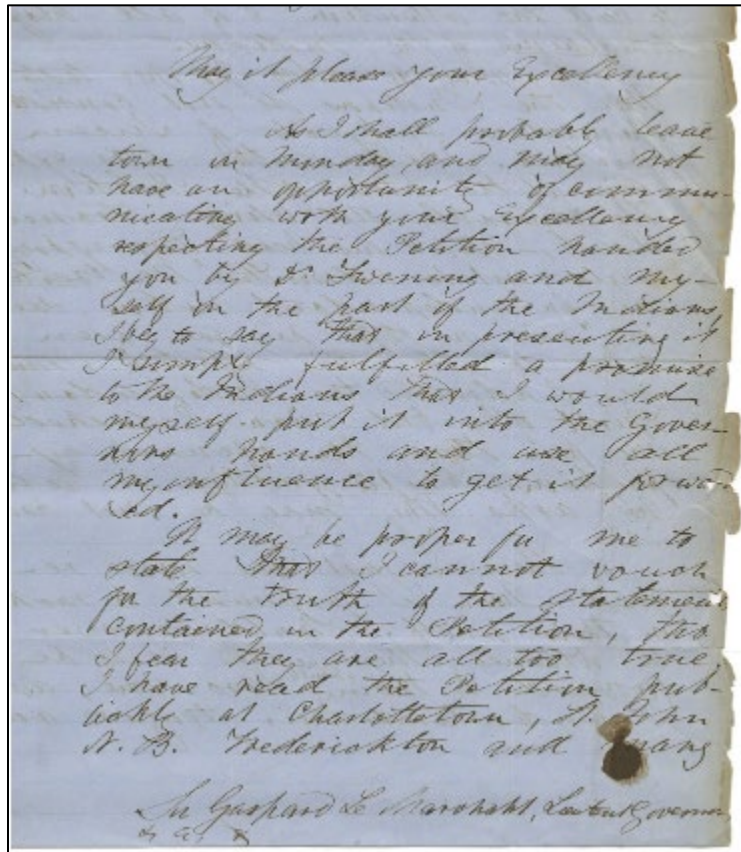 May it please your Excellency
As I shall probably leave
town on Monday and may not
have an opportunity of commu-
nicating with your Excellency
respecting the Petition handed
you by Dr Twening and my-
self on the part of the Indians,
I beg to say that in presenting it
I simply fulfilled a promise
to the Indians that I would
myself put it into the Gover-
nors hands and use all
my influence to get it forward
ed.
It may be proper for me to
state that I cannot vouch
for the truth of the statements
contained in the Petition, tho
I fear they are all too true.
I have read the Petition pub-
lickly at Charlottetown, St. John
N. B. Frederickton and
Sir Gaspard Le Marchant, Lieutent Governor